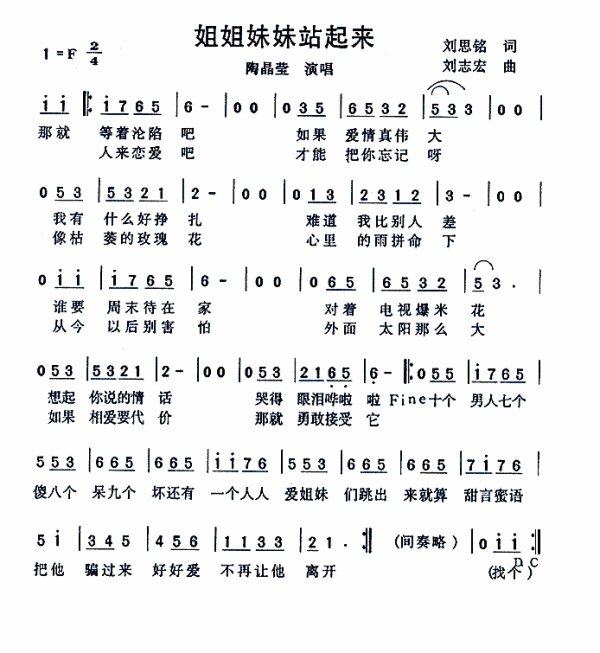 姐姐妹妹站起来
1=F 2/4
陶晶莹 演唱
刘思铭 词
刘志宏 曲
i i |: i 7 6 5 | 6 - | 0 0 | 0 3 5 | 6 5 3 2 | 5 3 3 | 0 0 |
那就 等着沦陷 吧 如果 爱情真伟 大
人来恋爱 吧 才能 把你忘记 呀
0 5 3 | 5 3 2 1 | 2 - | 0 0 | 0 1 3 | 2 3 1 2 | 3 - | 0 0 |
我有 什么好挣 扎 难道 我比别人 差
像枯 萎的玫瑰 花 心里 的雨拼命 下
0 i i | i 7 6 5 | 6 - | 0 0 | 0 6 5 | 6 5 3 2 | 5 3 . |
谁要 周末待在 家 对着 电视爆米 花
从今 以后别害 怕 外面 太阳那么 大
0 5 3 | 5 3 2 1 | 2 - | 0 0 | 0 5 3 | 2 1 6 5 | 6 - |: 0 5 5 | i 7 6 5 |
想起 你说的情 话 哭得 眼泪哗啦 啦 Fine 十个 男人七个
如果 相爱要代 价 那就 勇敢接受 它
5 5 3 | 6 6 5 | 6 6 5 | i i 7 6 | 5 5 3 | 6 6 5 | 6 6 5 | 7 i 7 6 |
傻八个 呆九个 坏还有 一个人人 爱姐妹 们跳出 来就算 甜言蜜语
5 i | 3 4 5 | 4 5 6 | 1 1 3 3 | 2 1 . :| (间奏略) | 0 i i :|
D C
把他 骗过来 好好爱 不再让他 离开 (找个)